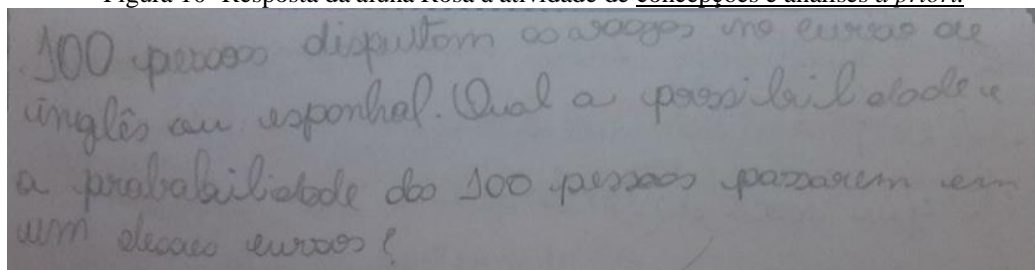 Figura 10- Resposta da aluna Rosa à atividade de concepções e análises a priori.
100 pessoas disputam as vagas no curso de
inglês ou esponhal. Qual a possibilidade e
a probabilidade das 100 pessoas passarem em
um desses cursos?